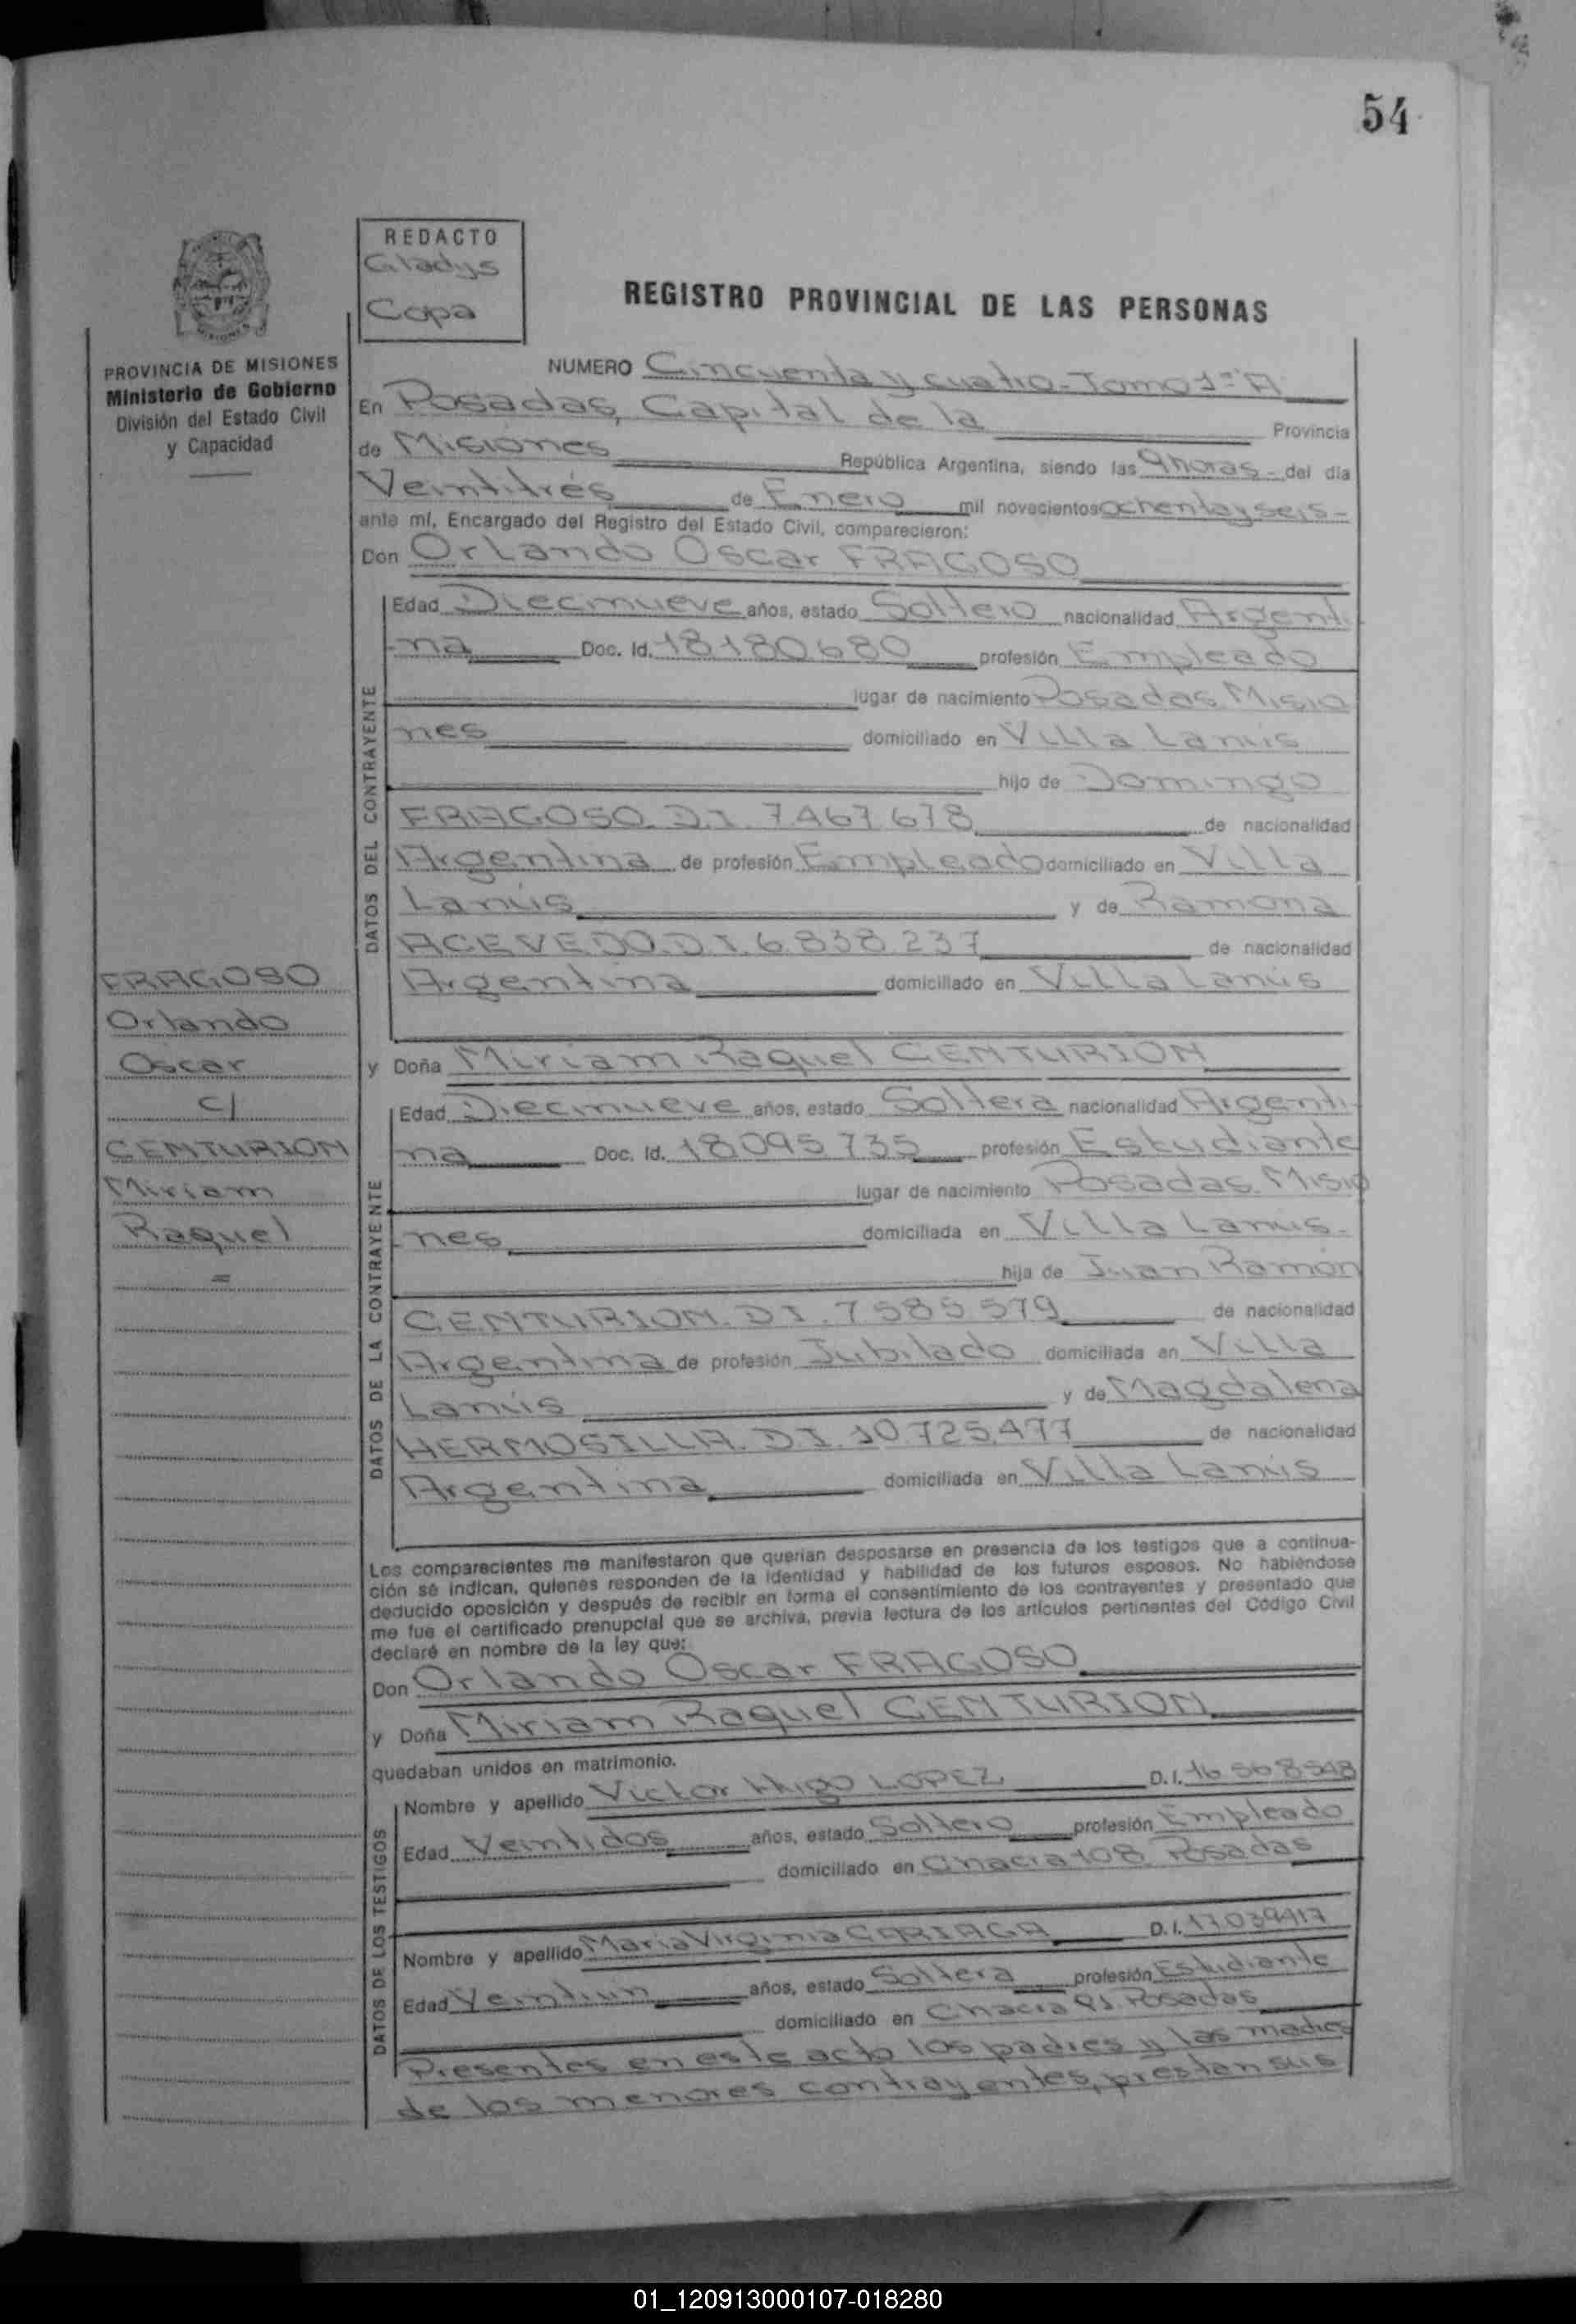 54
REDACTO
Gladys
Copa
REGISTRO PROVINCIAL DE LAS PERSONAS
PROVINCIA DE MISIONES
Ministerio de Gobierno
División del Estado Civil
y Capacidad
NUMERO Cincuenta y cuatro - Tomo 1º "A"
En Posadas, Capital de la Provincia
de Misiones República Argentina, siendo las 9 horas - del día
Veintitrés de Enero mil novecientos ochenta y seis -
ante mí, Encargado del Registro del Estado Civil, comparecieron:
Don Orlando Oscar FRAGOSO
DATOS DEL CONTRAYENTE
Edad Diecinueve años, estado Soltero nacionalidad Argenti-
na Doc. Id. 18180680 profesión Empleado
lugar de nacimiento Posadas Misio
nes domiciliado en Villa Lanús
hijo de Domingo
FRAGOSO. D.I. 7.467.678 de nacionalidad
Argentina de profesión Empleado domiciliado en Villa
Lanús y de Ramona
ACEVEDO. D.I. 6.838.237 de nacionalidad
Argentina domiciliado en Villa Lanús
FRAGOSO
Orlando
Oscar
c/
CENTURION
Miriam
Raquel
=
y Doña Miriam Raquel CENTURION
DATOS DE LA CONTRAYENTE
Edad Diecinueve años, estado Soltera nacionalidad Argenti-
na Doc. Id. 18095.735 profesión Estudiante
lugar de nacimiento Posadas. Misio
nes domiciliada en Villa Lanús.
hija de Juan Ramón
CENTURION. D.I. 7585579 de nacionalidad
Argentina de profesión Jubilado domiciliada en Villa
Lanús y de Magdalena
HERMOSILLA. D.I. 10.725.477 de nacionalidad
Argentina domiciliada en Villa Lanús
Los comparecientes me manifestaron que querían desposarse en presencia de los testigos que a continua-
ción se indican, quienes responden de la identidad y habilidad de los futuros esposos. No habiéndose
deducido oposición y después de recibir en forma el consentimiento de los contrayentes y presentado que
me fue el certificado prenupcial que se archiva, previa lectura de los artículos pertinentes del Código Civil
declaré en nombre de la ley que:
Don Orlando Oscar FRAGOSO
y Doña Miriam Raquel CENTURION
quedaban unidos en matrimonio.
DATOS DE LOS TESTIGOS
Nombre y apellido Victor Hugo LOPEZ D.I. 16 568 548
Edad Veintidos años, estado Soltero profesión Empleado
domiciliado en Chacra 108. Posadas
Nombre y apellido Maria Virginia CARIAGA D.I.
Edad Veintiun años, estado Soltera profesión Estudiante
domiciliado en Chacra Posadas
Presentes en este acto los padres y las madres
de los menores contrayentes, prestan sus
01_120913000107-018280